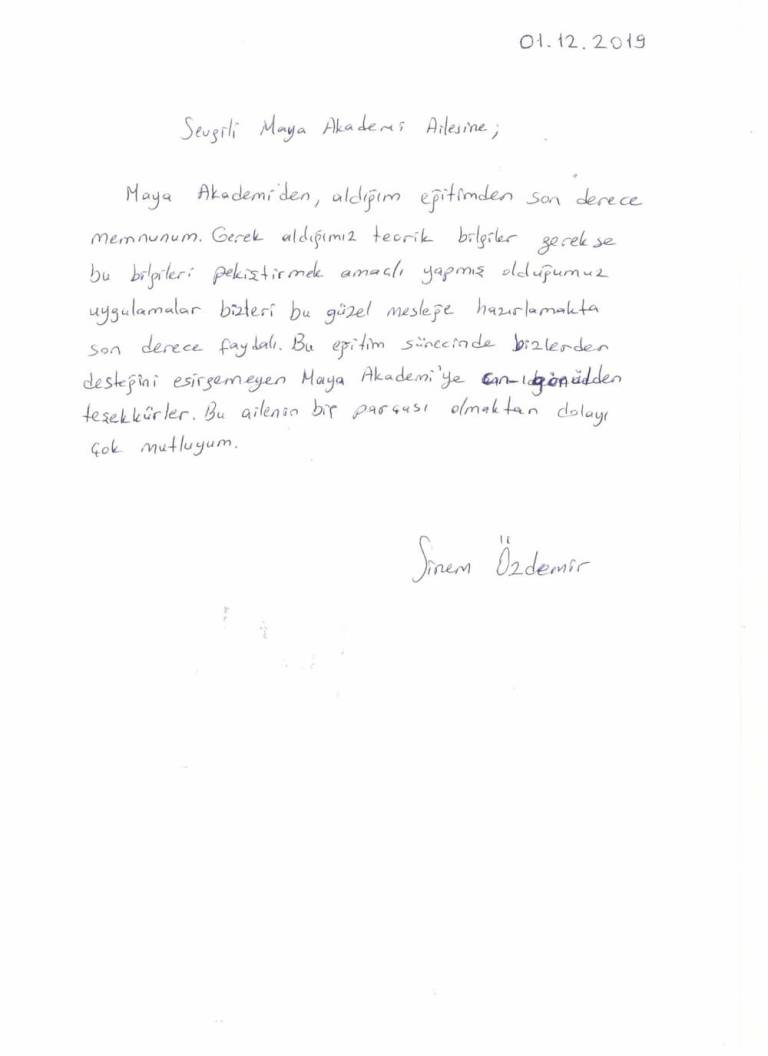 01.12.2019
Sevgili Maya Akademi Ailesine;
Maya Akademi'den, aldığım eğitimden son derece
memnunum. Gerek aldığımız teorik bilgiler gerekse
bu bilgileri pekiştirmek amaçlı yapmış olduğumuz
uygulamalar bizleri bu güzel mesleğe hazırlamakta
son derece faydalı. Bu eğitim sürecinde bizlerden
desteğini esirgemeyen Maya Akademi'ye
teşekkürler. Bu ailenin bir parçası olmaktan dolayı
çok mutluyum.
Sinem Özdemir